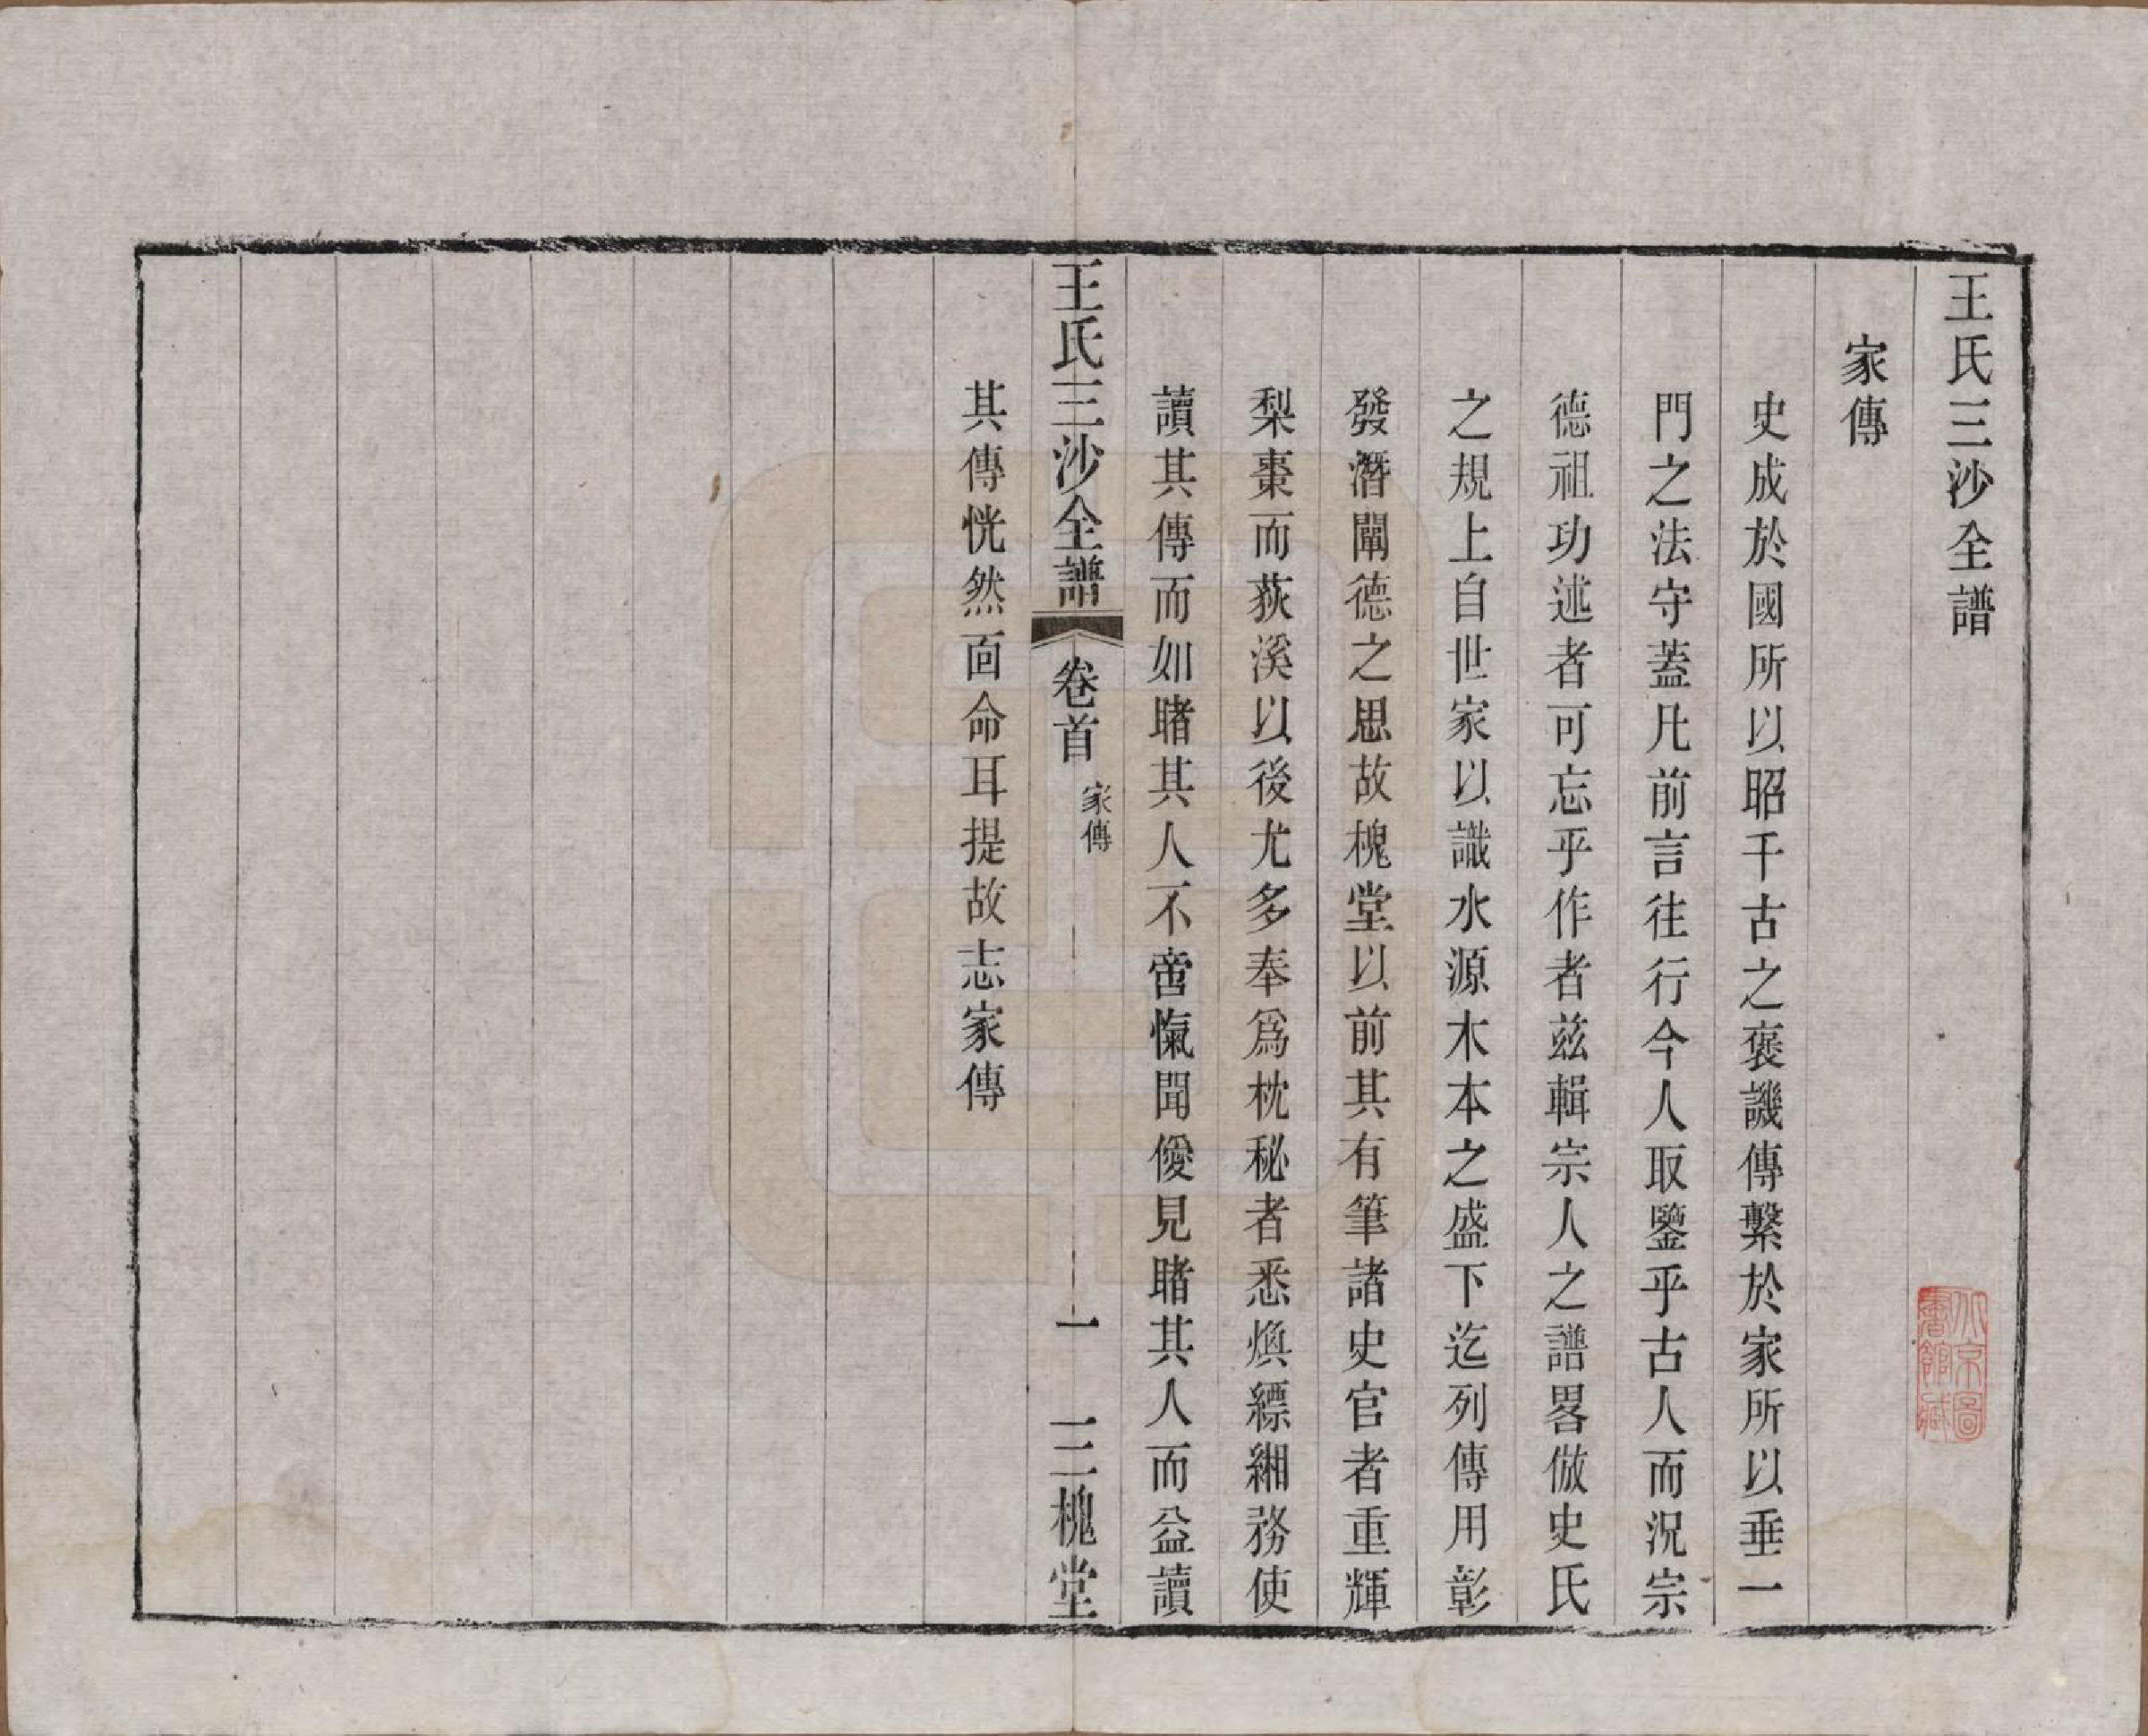 王氏三沙全譜
家傳
史成於國所以昭千古之褒譏傳繫於家所以垂一
門之法守蓋凡前言往行今人取鑒乎古人而況宗
德祖功述者可忘乎作者茲輯宗人之譜畧倣史氏
之規上自世家以識水源木本之盛下迄列傳用彰
發潛闡德之思故槐堂以前其有筆諸史官者重輝
梨棗而荻溪以後尤多奉爲枕秘者悉煥縹緗務使
讀其傳而如睹其人不啻愾聞僾見睹其人而益讀
王氏三沙全譜
卷首
家傳
一
三槐堂
其傳恍然面命耳提故志家傳
北京圖
書館藏